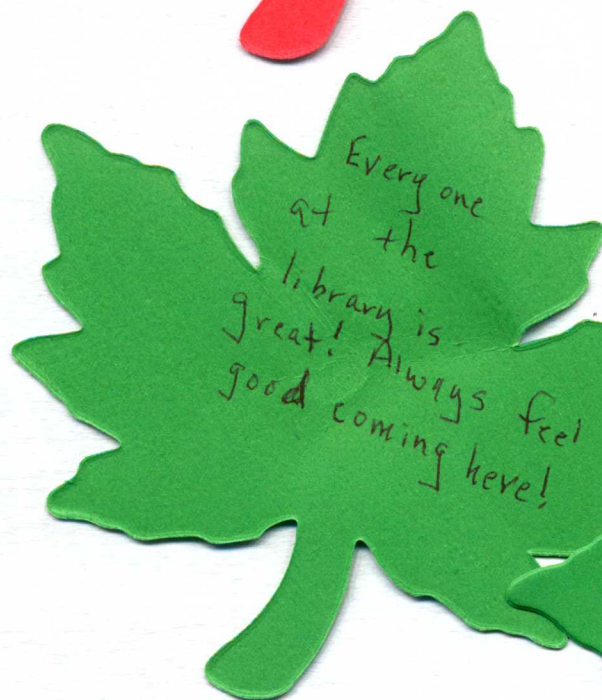 Every one
at the
library is
great! Always feel
good coming here!